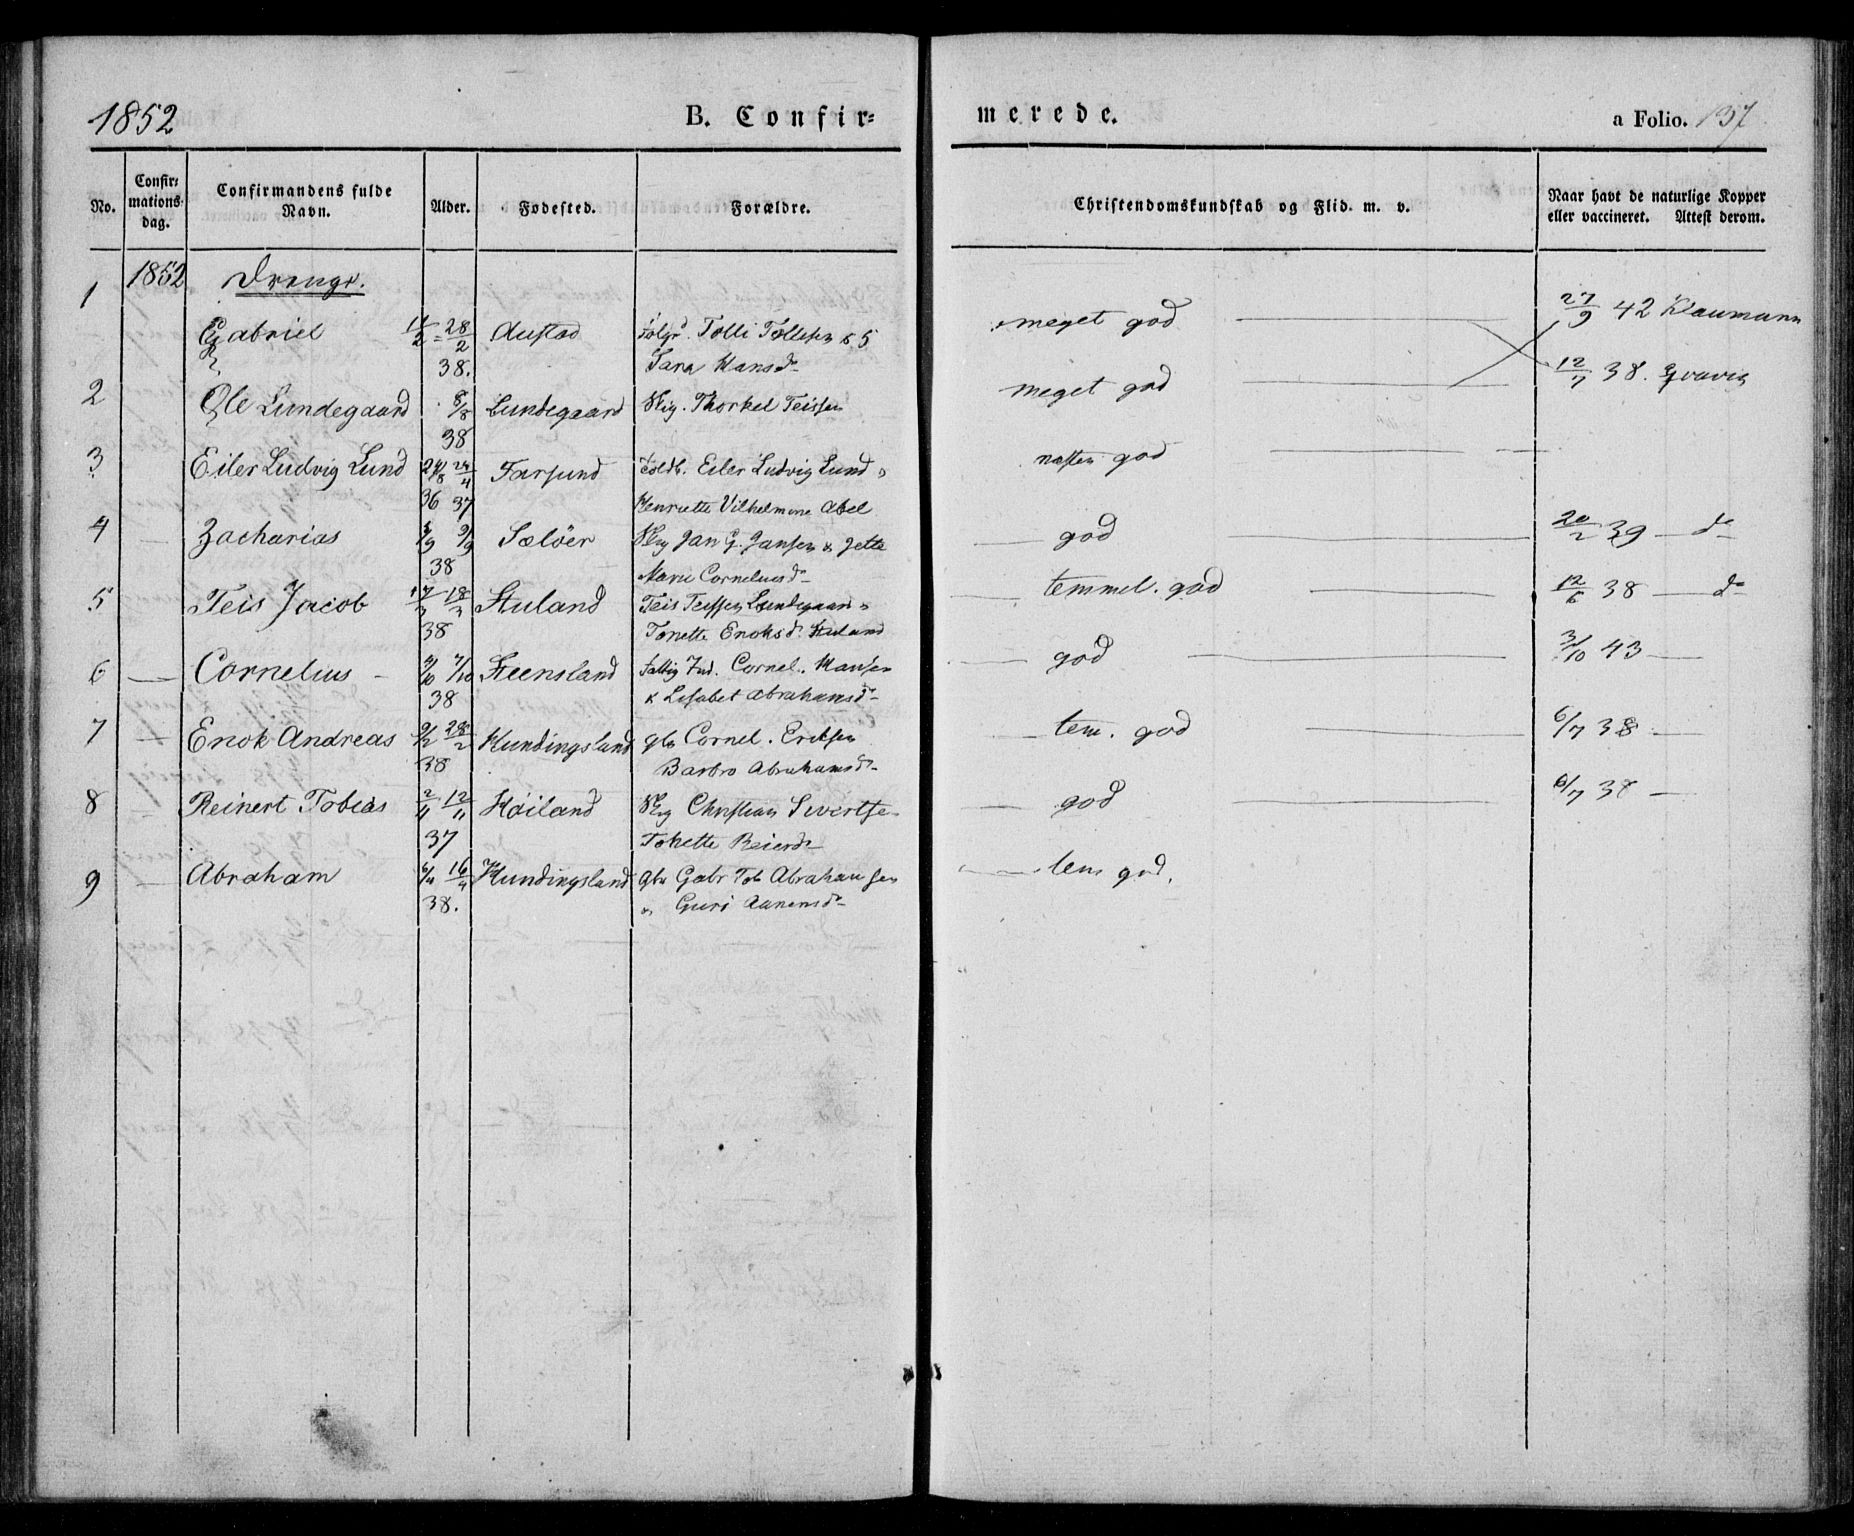 1852 B. Confir= merede. a Folio. 137
No. Confir= mations= dag. Confirmandens fulde Navn. Alder. Fødested. Forældre. Christendomskundskab og Flid m. v. Naar havt de naturlige Kopper eller vaccineret. Attest derom.
1852 Drenge.
1 Gabriel 28/2 38. Austad Tolli Tollesen & Sara Hansd meget god 27/9 42 Klaumann
2 Ole Lundegaard 8/8 38 Lundegaard Thorkel Teissen meget god 12/7 38.
3 Eiler Ludvig Lund 24/8 36 24/4 37 Farsund Toldb. Eiler Ludvig Lund
Henriette Vilhelmine Abel næsten god
4 Zacharias 9/9 38 Sælöer Jan G. Jansen & Jette
Marie Corneliusd god 20/2 39 do
5 Teis Jacob 17/3 18/3 38 Stuland Teis Teissen Lundegaard
Tonette Enoksd. Stuland temmel. god 12/6 38 do
6 Cornelius 7/10 38 Steensland Fattig Ind. Cornel. Hansen
& Lisabet Abrahamsd god 3/10 43
7 Enok Andreas 9/2 28/2 38 Kundingsland Cornel. Eriksen
Barbro Abrahamsd tem. god 6/7 38
8 Reinert Tobias 2/11 12/11 37 Köiland Christian Sivertse
Tonette Reiersd god 6/7 38
9 Abraham 6/4 16/4 38. Kundingsland Gabr Tob Abrahamsen
& Guri Aanensd tem god.